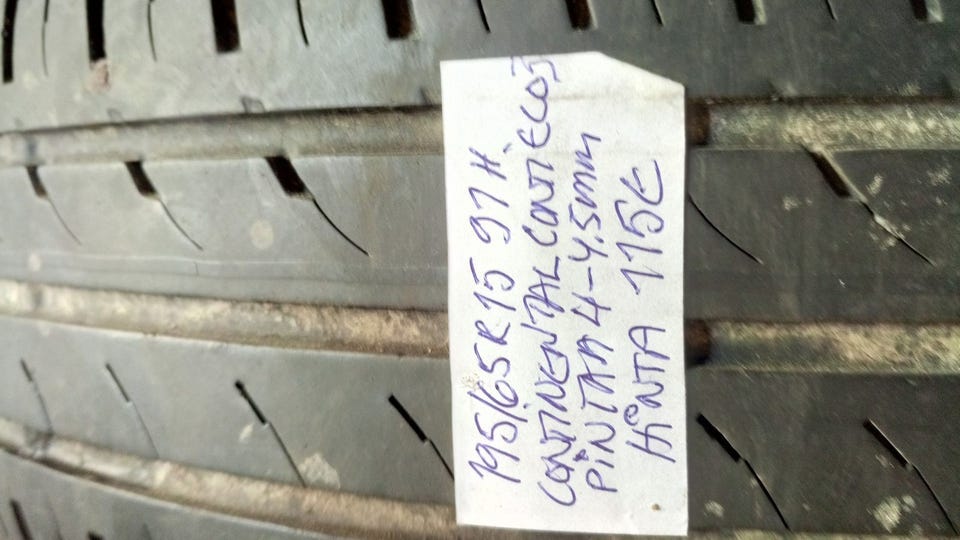 195/65R15 91H
CONTINENTAL CONTiECO3
PiNTAA 4-4.5mm
HiNTA 115€